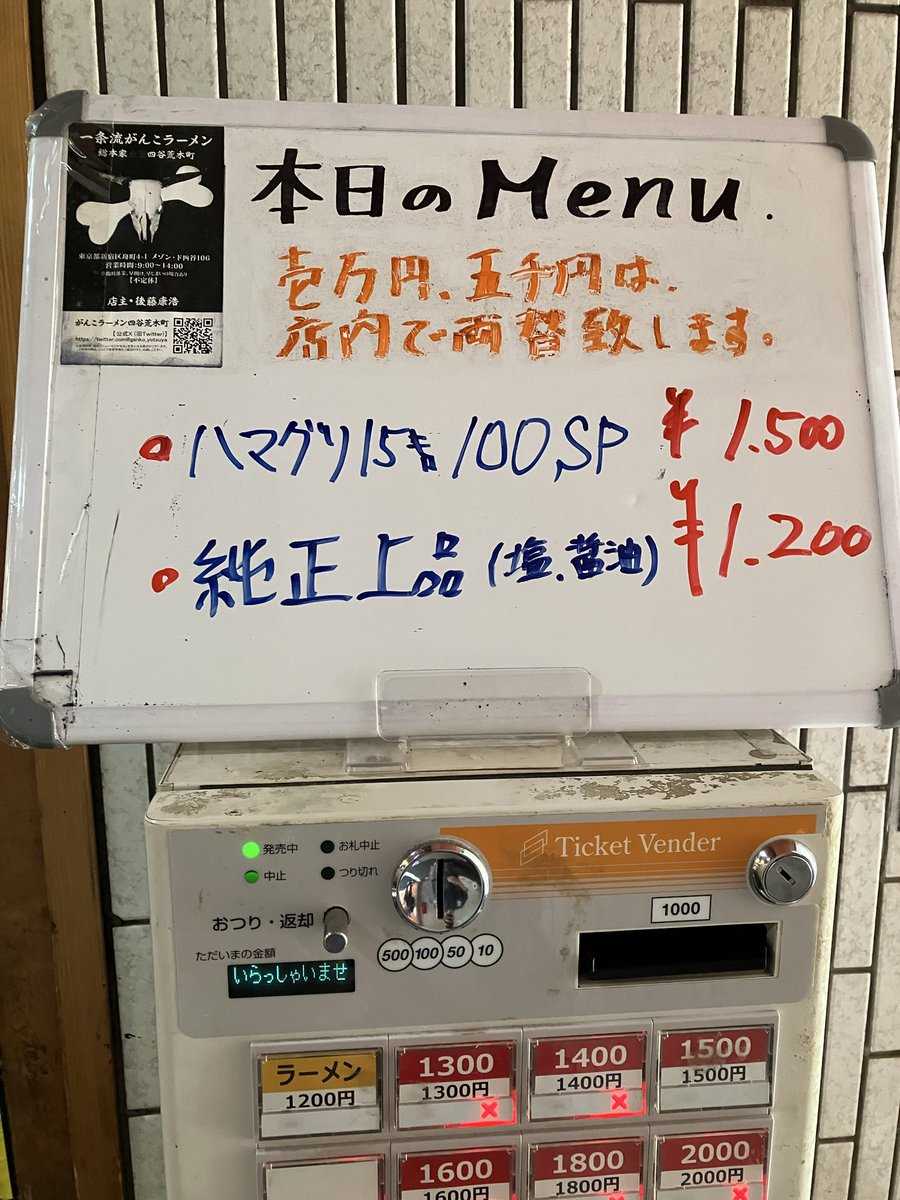 一条流がんこラーメン
総本家 四谷荒木町
東京都新宿区舟町4-1 メゾン・ド四谷106
営業時間:9:00~14:00
【不定休】
店主・後藤康浩
がんこラーメン四谷荒木町
【公式X(旧Twitter)】
https://twitter.com/ganko_yotsuya
本日のMenu.
壱万円、五千円は、
店内で両替致します。
ハマグリ15キロ 100,SP ¥1.500
純正上品(塩、醤油) ¥1.200
Ticket Vender
発売中 お札中止
中止 つり切れ
おつり・返却
1000
ただいまの金額
いらっしゃいませ
500 100 50 10
ラーメン 1300 1400 1500
1200円 1300円 1400円 1500円
1600 1800 2000
1600円 1800円 2000円